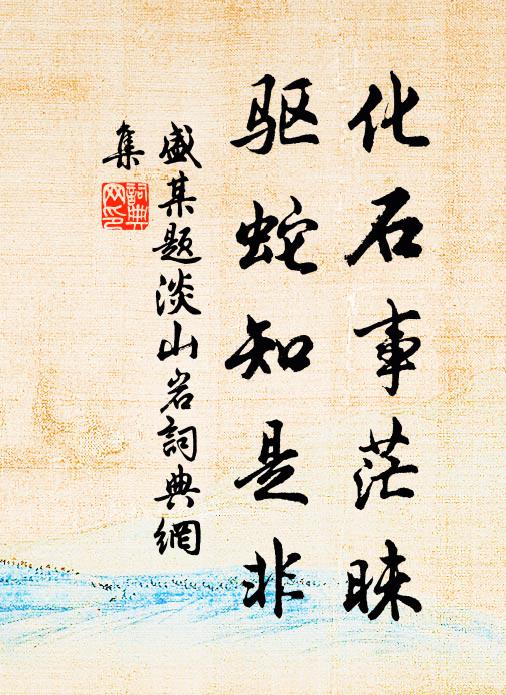 化石事茫昧
驱蛇知是非
盛某题淡山岩詞典網
集
詞典网印